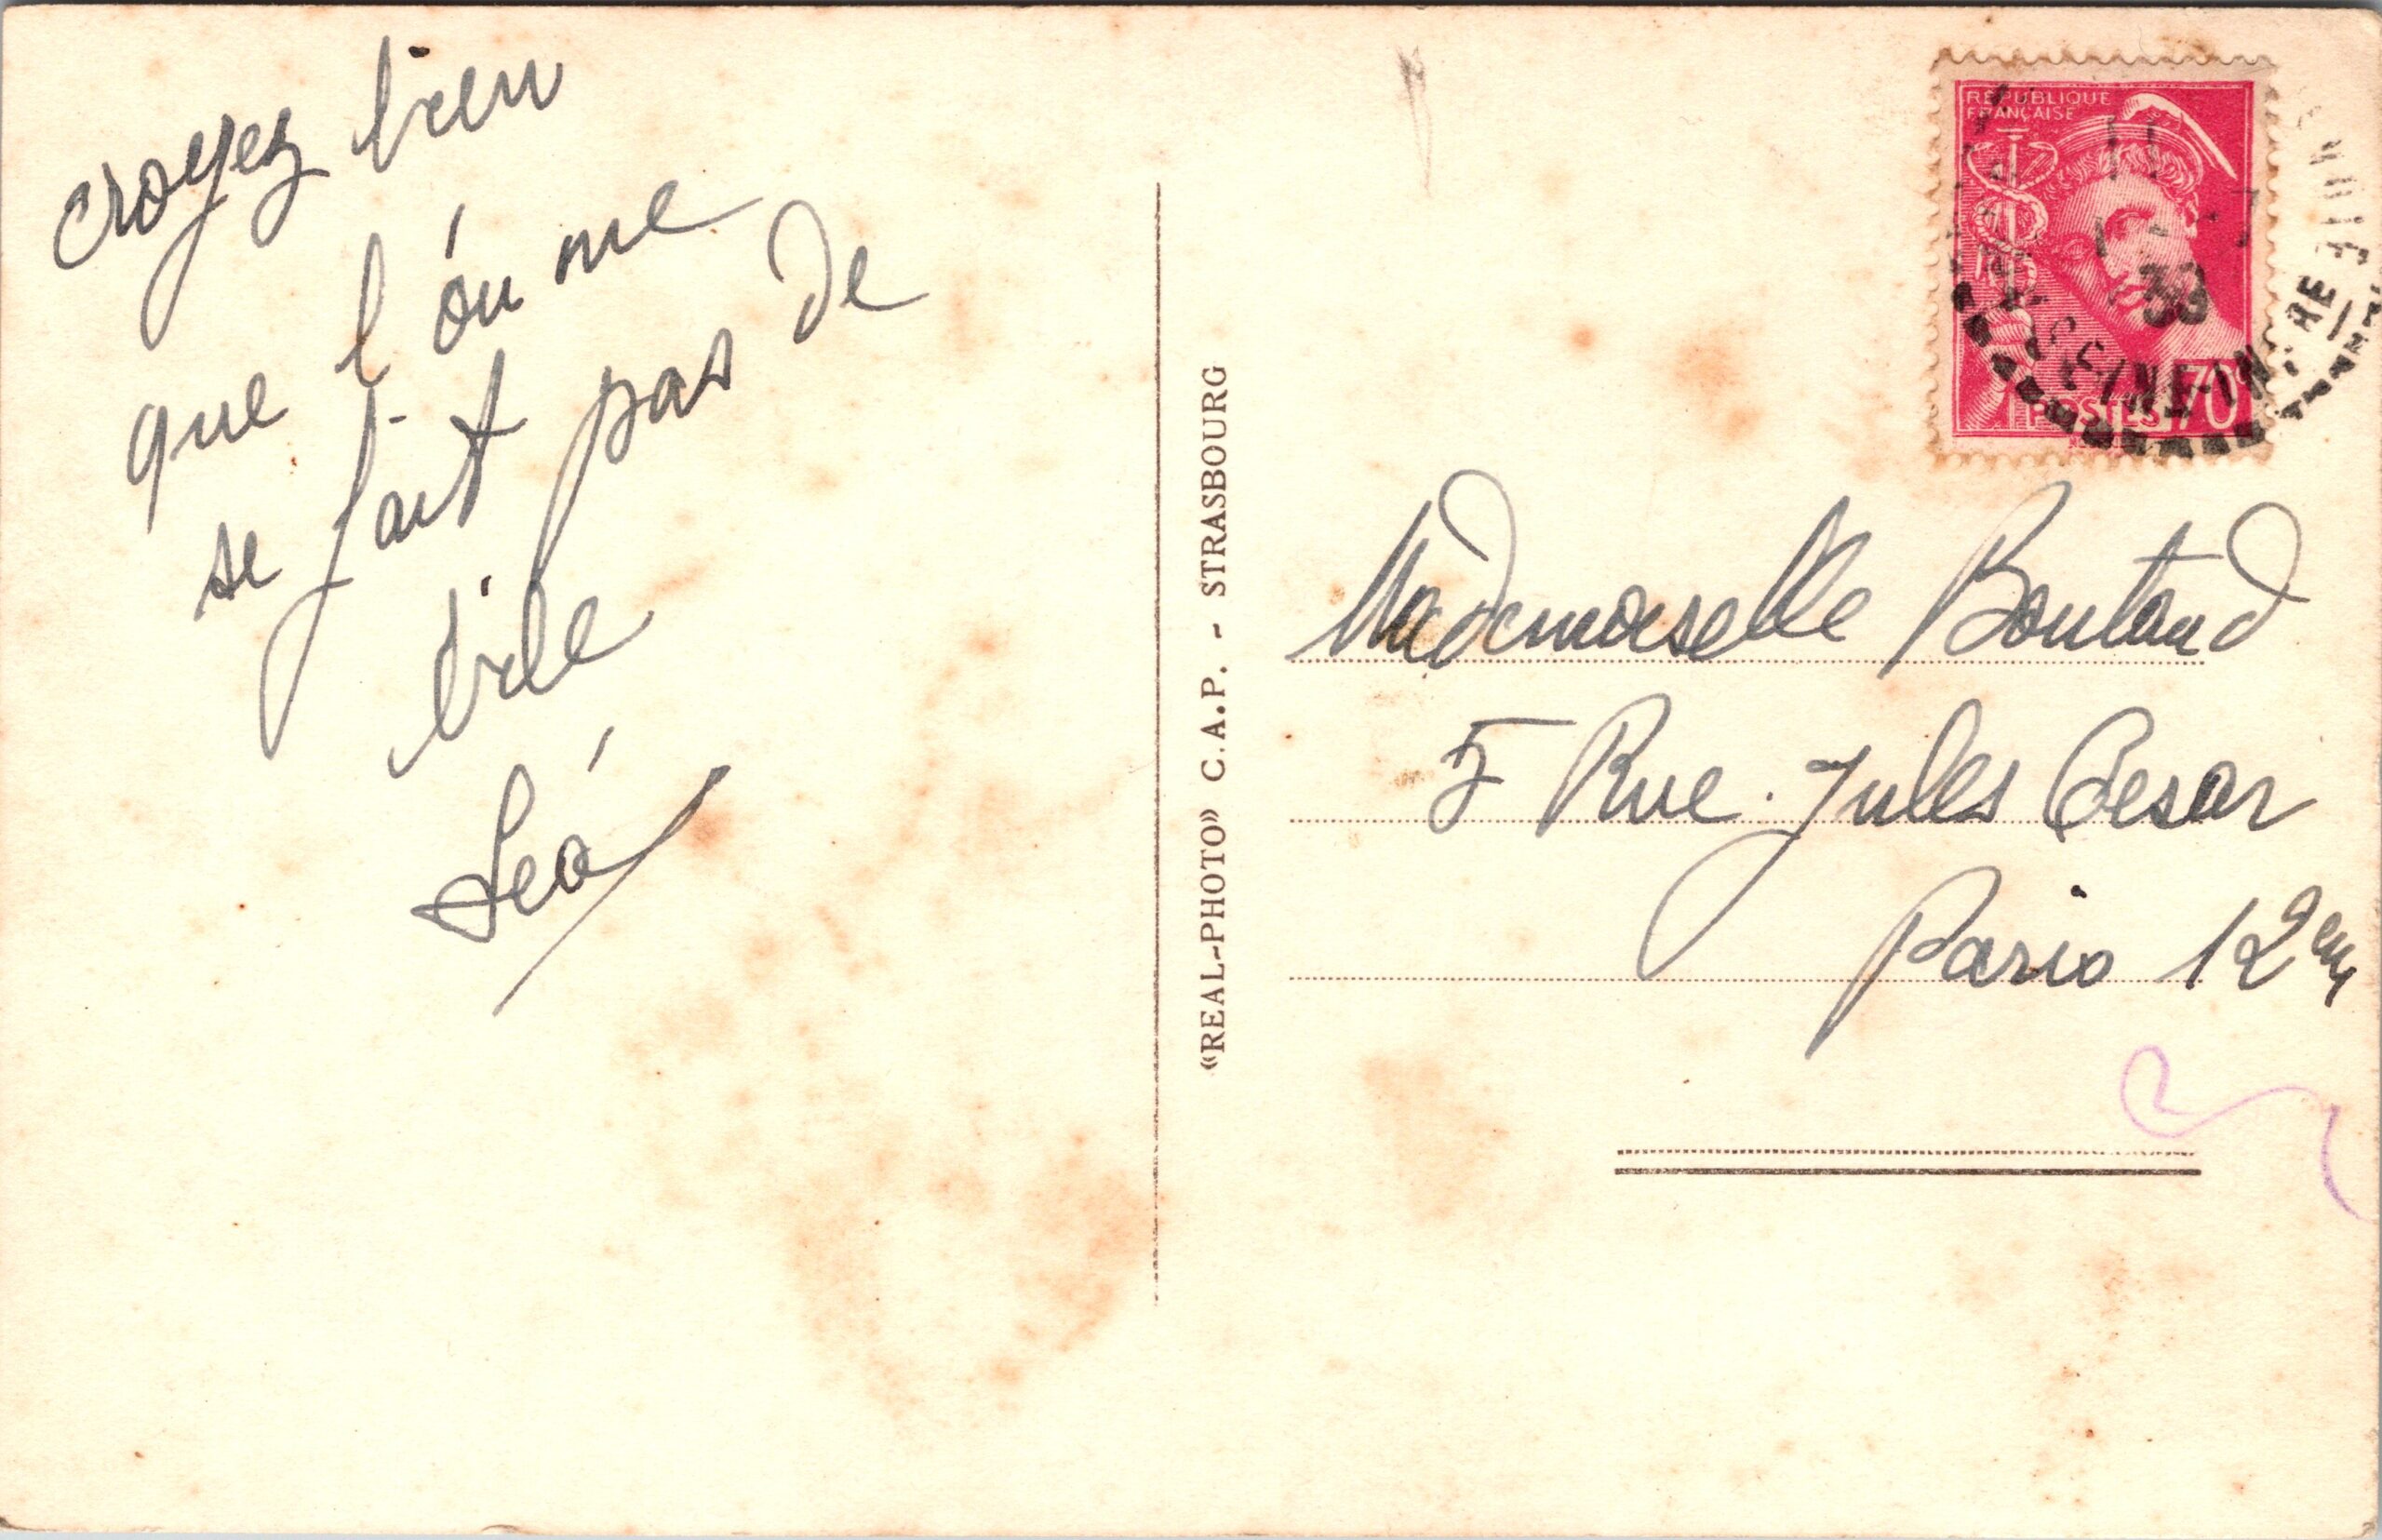 croyez bien
que l'on ne
se fait pas de
bile
Léa
«REAL-PHOTO» C.A.P. - STRASBOURG
RÉPUBLIQUE
FRANÇAISE
POSTES 70
Mademoiselle Boutaud
5 Rue Jules Cesar
Paris 12eme